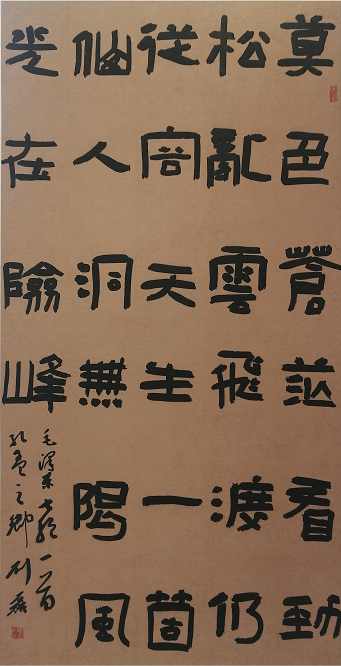 莫色蒼茫看勁
松亂雲飛渡仍
從容天生一箇
仙人洞無限風
光在險峰
毛澤東七絕一首
孔孟之鄉